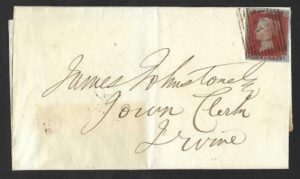 James Johnstone Esq
Town Clerk
Irvine